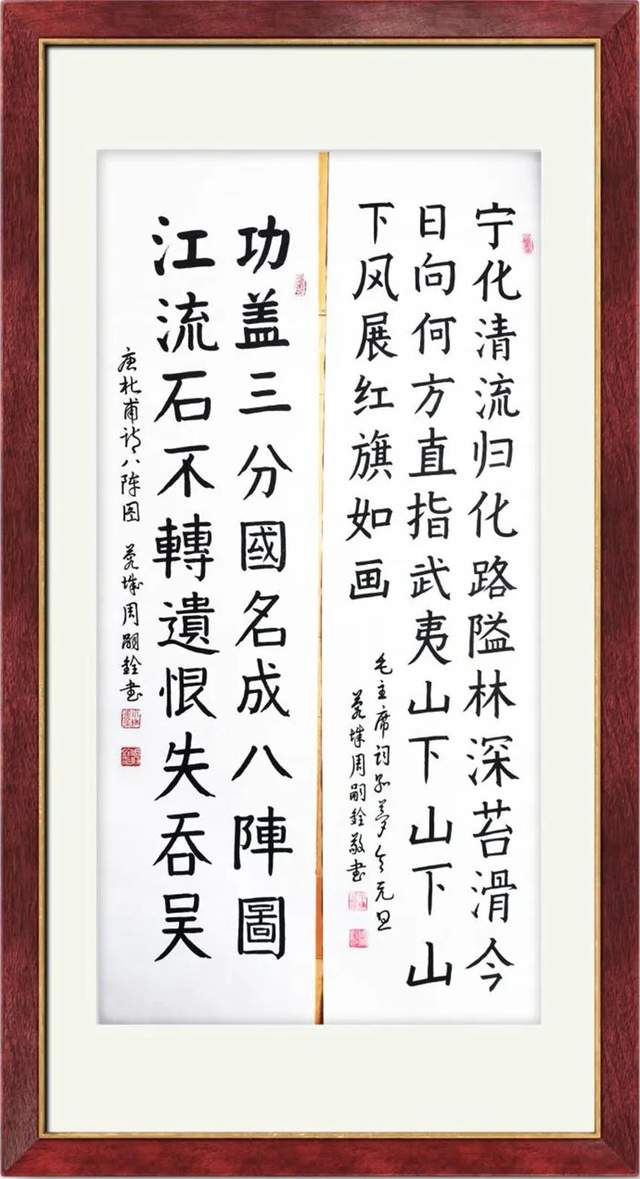 宁化清流归化路隘林深苔滑今
日向何方直指武夷山下山下山
下风展红旗如画
毛主席词如梦令元旦
周嗣銓敬书
功盖三分國名成八陣圖
江流石不轉遺恨失吞吴
唐杜甫诗八陈图
周嗣銓书